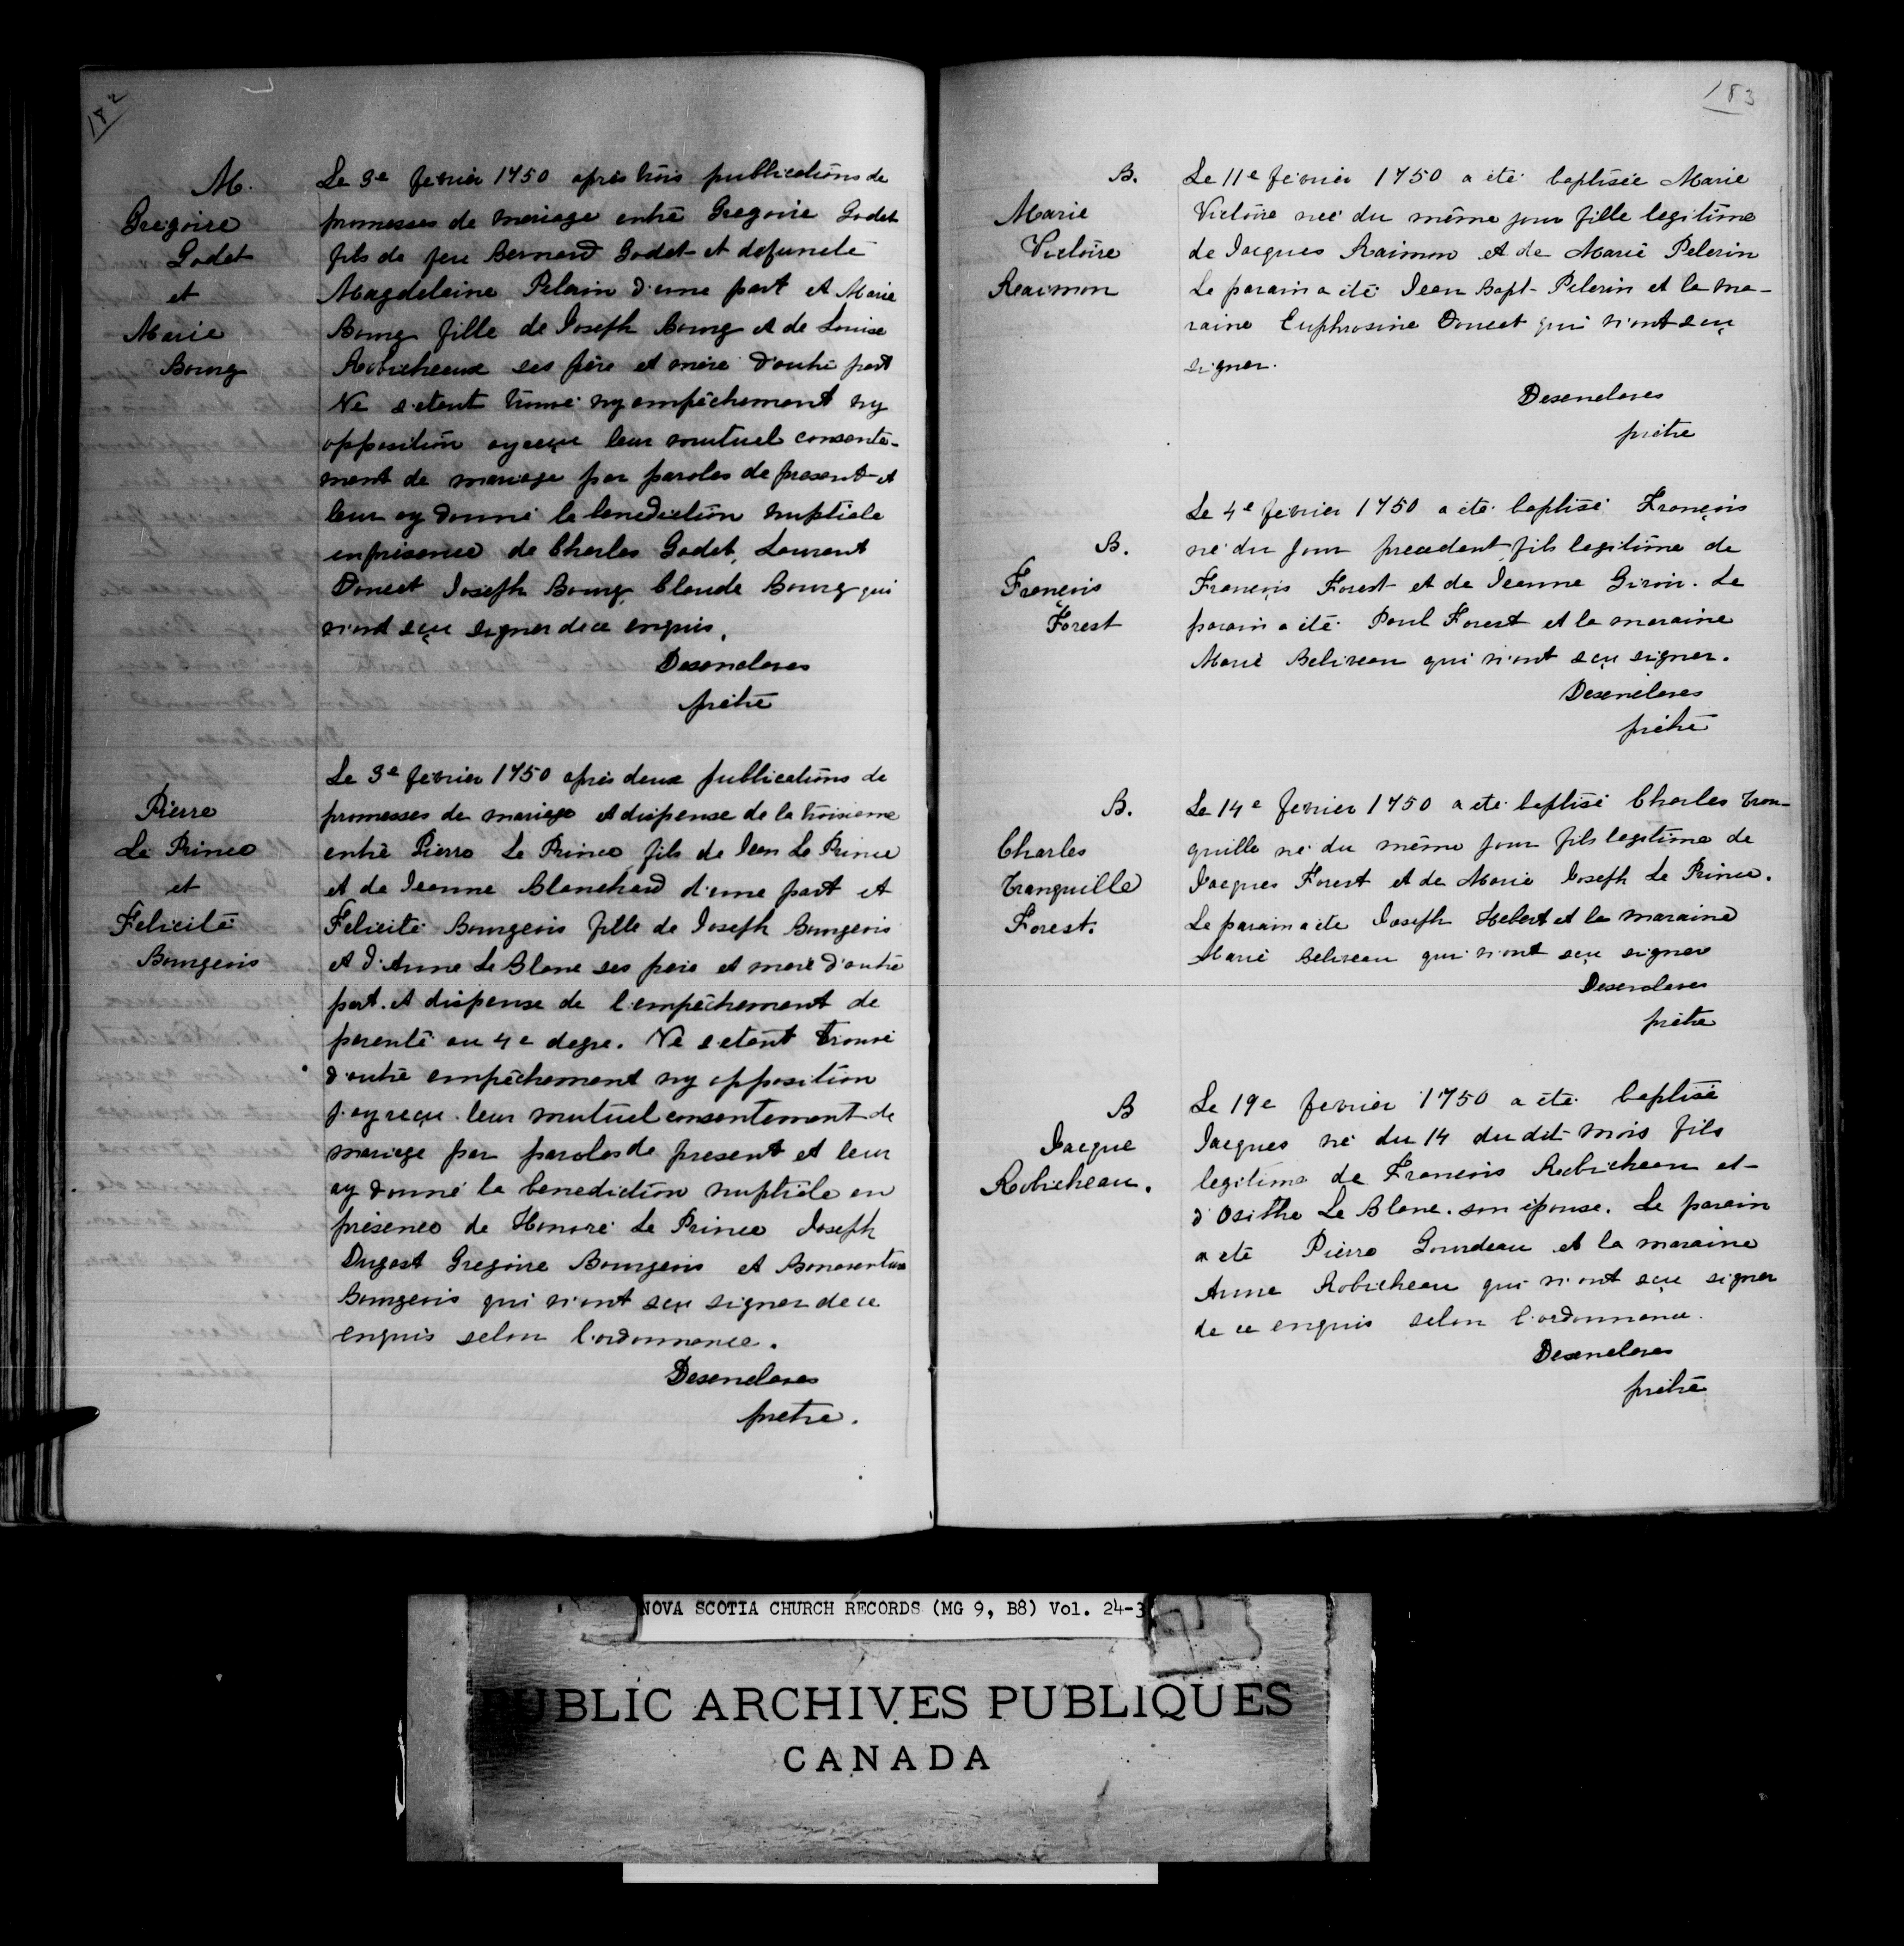 182
M.
Gregoire
Godet
et
Marie
Bourg
Le 3e fevrier 1750 après trois publications de
promesses de mariage entre Gregoire Godet
fils de feu Bernard Godet et defuncte
Magdeleine Pelerin d'une part et Marie
Bourg fille de Joseph Bourg et de Louise
Robicheaux ses père et mère d'autre part
Ne s'etant trouvé ny empêchement ny
opposition ay reçu leur mutuel consente-
ment de mariage par paroles de present et
leur ay donné la benediction nuptiale
en presence de Charles Godet, Laurent
Doucet Joseph Bourg Claude Bourg qui
n'ont sçu signer de ce enquis.
Desenclaves
prêtre
Pierre
Le Prince
et
Felicité
Bourgeois
Le 3e fevrier 1750 après deux publications de
promesses de mariage et dispense de la troisieme
entre Pierre Le Prince fils de Jean Le Prince
et de Jeanne Blanchard d'une part et
Felicité Bourgeois fille de Joseph Bourgeois
et d'Anne Le Blanc ses père et mere d'autre
part. et dispense de l'empêchement de
parenté au 4e degre. Ne s'etant trouvé
d'autre empêchement ny opposition
j'ay reçu leur mutuel consentement de
mariage par paroles de present et leur
ay donné la benediction nuptiale en
présence de Honoré Le Prince Joseph
Dugast Gregoire Bourgeois et Bonaventure
Bourgeois qui n'ont sçu signer de ce
enquis selon l'ordonnance.
Desenclaves
pretre.
183
B.
Marie
Victoire
Raaimon
Le 11e fevrier 1750 a été baptisée Marie
Victoire neé du même jour fille legitime
de Jacques Raimon et de Marie Pelerin
Le parain a été Jean Bapt. Pelerin et la ma-
raine Euphrosine Doucet qui n'ont sçu
signer.
Desenclaves
prêtre
B.
François
Forest
Le 4e fevrier 1750 a été baptisé François
né du jour precedent fils legitime de
François Forest et de Jeanne Giroir. Le
parain a été Paul Forest et la maraine
Marie Beliveau qui n'ont sçu signer.
Desenclaves
prêtre
B.
Charles
Tranquille
Forest.
Le 14e fevrier 1750 a eté baptisé Charles Tran-
quille né du même jour fils legitime de
Jacques Forest et de Marie Joseph Le Prince.
Le parain a été Joseph Hebert et la maraine
Marie Beliveau qui n'ont sçu signer
Desenclaves
prêtre
B
Jacque
Robicheau.
Le 19e fevrier 1750 a été baptisé
Jacques né du 14 du dit mois fils
legitime de François Robicheau et
d'Osithe Le Blanc. son épouse. Le parain
a été Pierre Gourdeau et la maraine
Anne Robicheau qui n'ont sçu signer
de ce enquis selon l'ordonnance.
Desenclaves
prêtre
NOVA SCOTIA CHURCH RECORDS (MG 9, B8) Vol. 24-3
PUBLIC ARCHIVES PUBLIQUES
CANADA